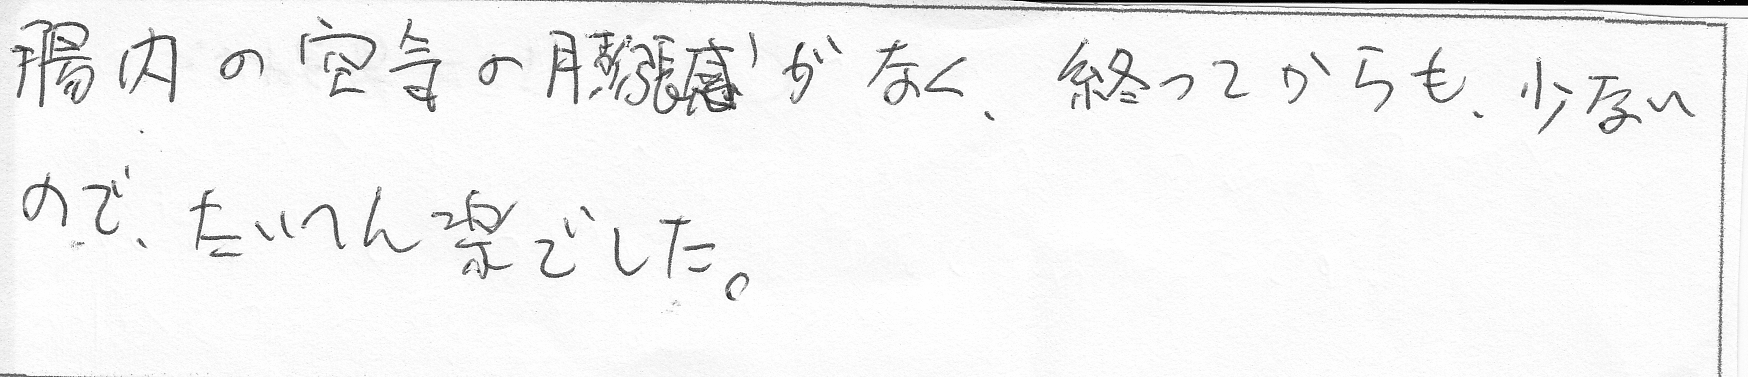 腸内の空気の膨張感がなく、終ってからも、少ない
ので、たいへん楽でした。